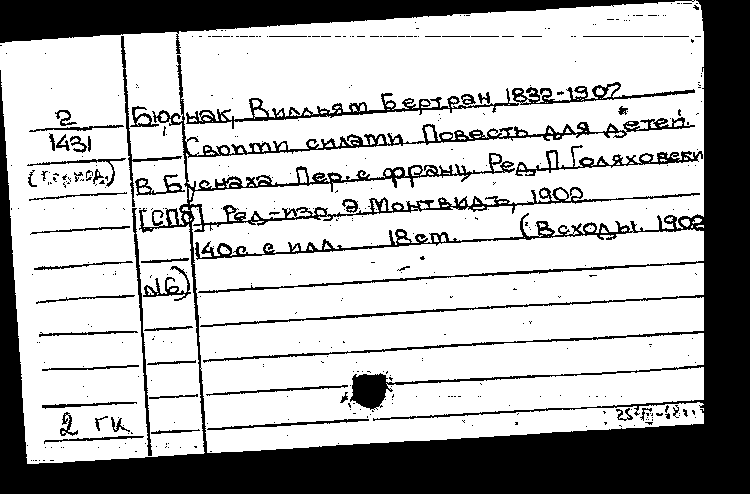 2
1431
(период.)
Бюснак, Вилльям Бертран, 1832-1907
Своими силами. Повесть для детей
В. Буснаха. Пер. с франц. Ред. П. Голяховски
[СПб], Ред-изд. Э. Монтвидъ, 1902
140с. с илл. 18см. (Всходы. 1902
№6)
2 ГК